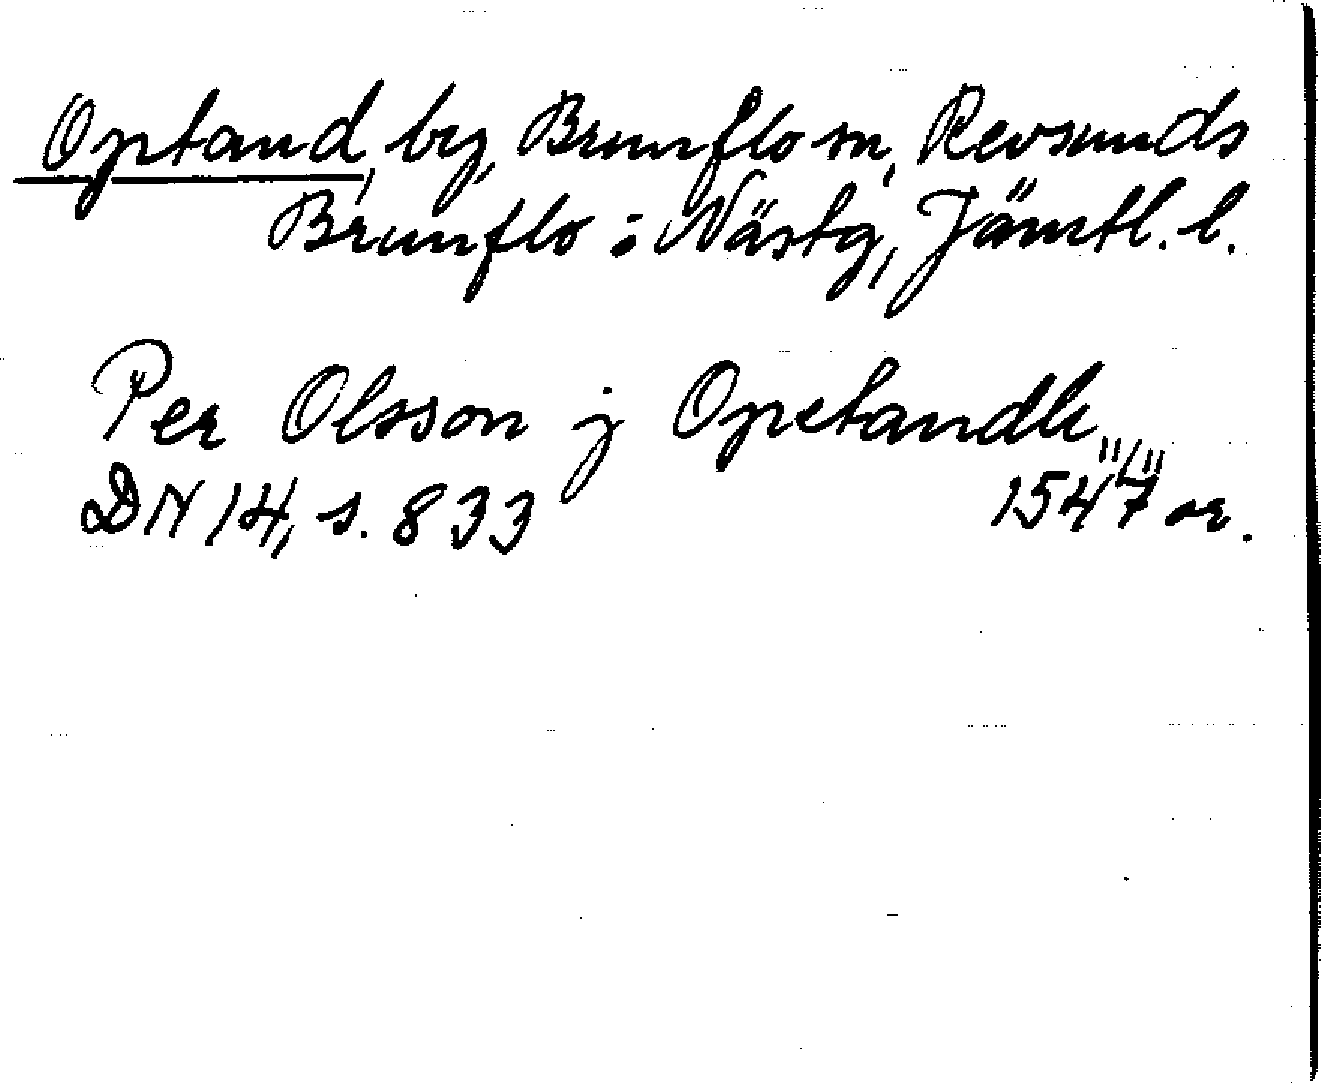 Optand, by, Brunflo sn, Revsunds
Brunflo o Näs tg, Jämtl. l.
Per Olsson j Opetandh
11/4
DN 14, s. 833 1547 or.